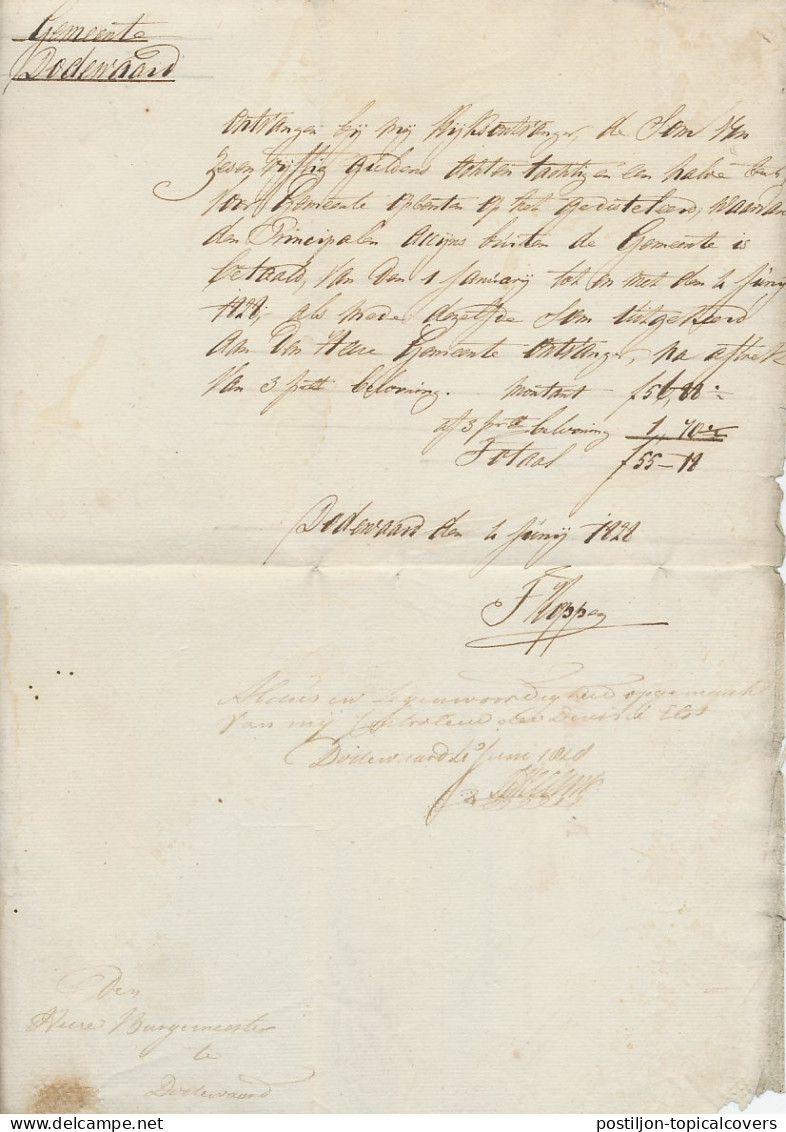 Gemeente
Dodewaard
Ontvangen bij mij Rijksontvanger, de Som van
Zeven vijftig Guldens achtentachtig en een halve Cents
voor Gemeente opcenten op het gedisteleerd, waarvan
den Principalen accijns buiten de Gemeente is
betaald, van den 1 Januarij tot en met den 4 Junij
1828, als mede dezelfde Som uitgekeerd
aan den Heer Gemeente Ontvanger, na aftrek
van 3 pCt belooning. Montant f 56,88
af 3 pCt belooning 1,70
Totaal f 55-18
Dodewaard den 4 Junij 1828
F Koppen
Aldus in tegenwoordigheid opgemaakt
van mij Controleur der Divisie Elst
Dodewaard 4 Juni 1828
Den
Heere Burgemeester
te
Dodewaard
postiljon-topicalcovers